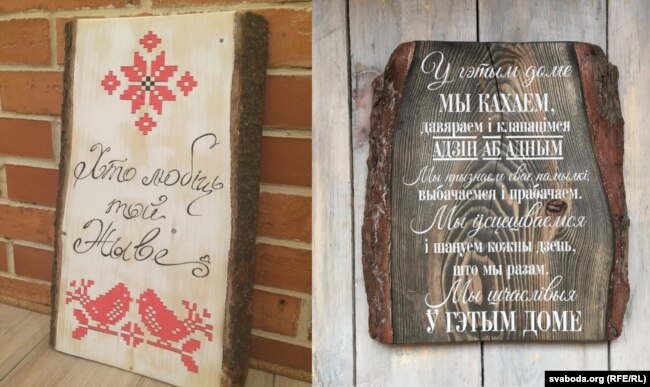 Хто любіць
той
Жыве
У гэтым доме
МЫ КАХАЕМ,
давяраем і клапацімся
АДЗІН АБ АДНЫМ
Мы прызнаем свае памылкі,
выбачаемся і прабачаем.
Мы ўсцешваемся
і шануем кожны дзень,
што мы разам.
Мы шчаслівыя
Ў ГЭТЫМ ДОМЕ
svaboda.org (RFE/RL)